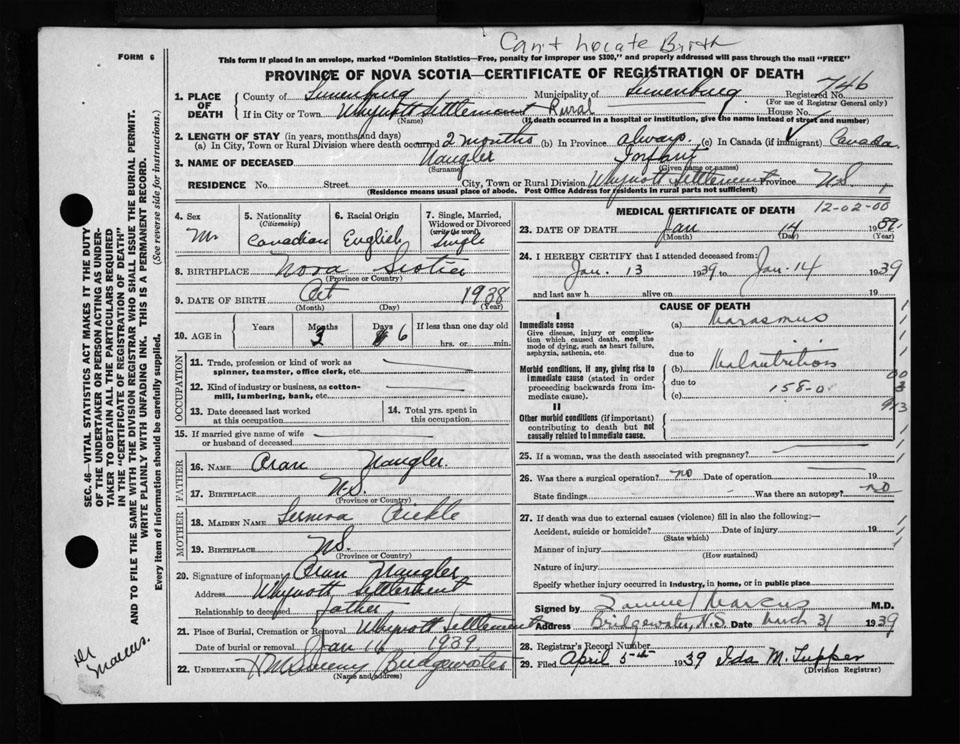 Can't Locate Birth
FORM 6
This form If placed in an envelope, marked "Dominion Statistics—Free, penalty for improper use $300," and properly addressed will pass through the mail "FREE"
PROVINCE OF NOVA SCOTIA—CERTIFICATE OF REGISTRATION OF DEATH
746
1. PLACE OF DEATH
County of Lunenburg Municipality of Lunenburg Registered No.
(For use of Registrar General only)
If in City or Town Whynott Settlement Rural House No.
(Name) (If death occurred in a hospital or institution, give the name instead of street and number)
2. LENGTH OF STAY (in years, months and days)
(a) In City, Town or Rural Division where death occurred 2 months (b) In Province always (c) In Canada (if immigrant) Canada
3. NAME OF DECEASED Naugler Infant
(Surname) (Given name or names)
RESIDENCE No. Street City, Town or Rural Division Whynott Settlement Province N.S.
(Residence means usual place of abode. Post Office Address for residents in rural parts not sufficient)
4. Sex M
5. Nationality (Citizenship) Canadian
6. Racial Origin English
7. Single, Married, Widowed or Divorced (write the word) Single
8. BIRTHPLACE Nova Scotia
(Province or Country)
9. DATE OF BIRTH Oct 1938
(Month) (Day) (Year)
10. AGE in Years Months 3 Days 6 If less than one day old
hrs. or min.
OCCUPATION
11. Trade, profession or kind of work as spinner, teamster, office clerk, etc.
12. Kind of industry or business, as cotton-mill, lumbering, bank, etc.
13. Date deceased last worked at this occupation
14. Total yrs. spent in this occupation
15. If married give name of wife or husband of deceased
FATHER
16. NAME Oran Naugler
17. BIRTHPLACE N.S.
(Province or Country)
MOTHER
18. MAIDEN NAME
19. BIRTHPLACE N.S.
(Province or Country)
20. Signature of informant Oran Naugler
Address Whynott Settlement
Relationship to deceased father
21. Place of Burial, Cremation or Removal Whynott Settlement
Date of burial or removal Jan 16 1939
22. UNDERTAKER Bridgewater
(Name and address)
MEDICAL CERTIFICATE OF DEATH 12-02-00
23. DATE OF DEATH Jan 14 1939
(Month) (Day) (Year)
24. I HEREBY CERTIFY that I attended deceased from:
Jan. 13 1939 to Jan. 14 1939
and last saw h alive on 19
CAUSE OF DEATH
I
Immediate cause
Give disease, injury or complication which caused death, not the mode of dying, such as heart failure, asphyxia, asthenia, etc.
(a) Marasmus
due to
Morbid conditions, if any, giving rise to immediate cause (stated in order proceeding backwards from immediate cause).
(b) Malnutrition
due to
(c) 158-0
II
Other morbid conditions (if important) contributing to death but not causally related to immediate cause.
25. If a woman, was the death associated with pregnancy?
26. Was there a surgical operation? no Date of operation 19
State findings Was there an autopsy? no
27. If death was due to external causes (violence) fill in also the following:—
Accident, suicide or homicide? Date of injury 19
(State which)
Manner of injury
(How sustained)
Nature of injury
Specify whether injury occurred in industry, in home, or in public place
Signed by Samuel Marcus M.D.
Address Bridgewater, N.S. Date March 31 1939
28. Registrar's Record Number
29. Filed April 5th 1939 Ida M. Tupper
(Division Registrar)
SEC. 46—VITAL STATISTICS ACT MAKES IT THE DUTY
OF THE UNDERTAKER OR PERSON ACTING AS UNDER-
TAKER TO OBTAIN ALL THE PARTICULARS REQUIRED
IN THE "CERTIFICATE OF REGISTRATION OF DEATH"
AND TO FILE THE SAME WITH THE DIVISION REGISTRAR WHO SHALL ISSUE THE BURIAL PERMIT.
WRITE PLAINLY WITH UNFADING INK. THIS IS A PERMANENT RECORD.
Every item of information should be carefully supplied. (See reverse side for instructions.)
Dr Marcus.